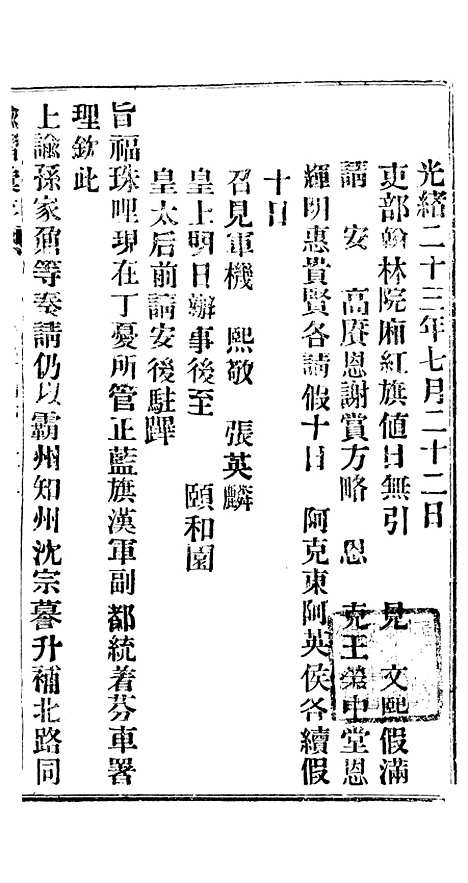 光緒二十三年七月二十二日
吏部翰林院廂紅旗值日無引　見　文熙假滿
請　安　高賡恩謝賞方略　恩　克王榮中堂恩
輝明惠貴賢各請假十日　阿克東阿英侯各續假
十日
召見軍機　熙敬　張英麟
皇上明日辦事後至　頤和園
皇太后前請安後駐蹕
旨福珠哩現在丁憂所管正藍旗漢軍副都統着芬車署
理欽此
上諭孫家鼐等奏請仍以霸州知州沈宗謩升補北路同